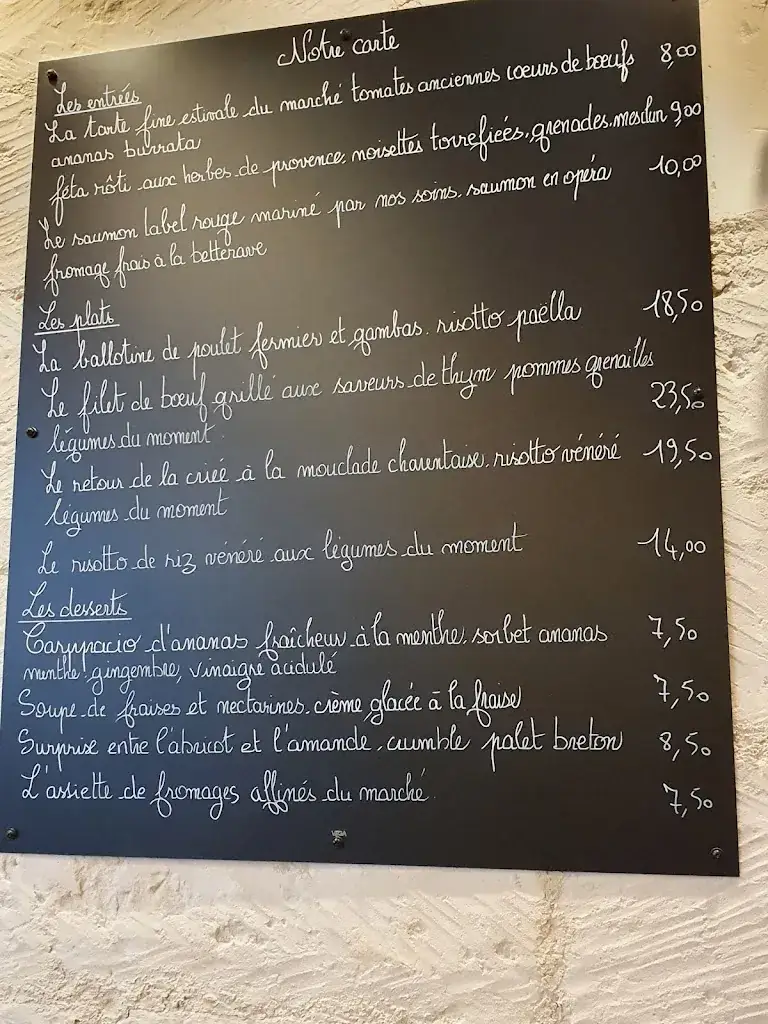 Notre carte
Les entrées
La tarte fine estivale du marché tomates anciennes coeurs de boeufs 8,00
ananas burrata
féta rôti aux herbes de provence, noisettes torrefiées, grenades, mesclun 9,00
Le saumon label rouge mariné par nos soins, saumon en opéra 10,00
fromage frais à la betterave
Les plats
La ballotine de poulet fermier et gambas, risotto paëlla 18,50
Le filet de bœuf grillé aux saveurs de thym pommes grenailles
légumes du moment 23,50
Le retour de la criée à la mouclade charentaise, risotto vénéré 19,50
légumes du moment
Le risotto de riz vénéré aux légumes du moment 14,00
Les desserts
Carppacio d'ananas fraîcheur à la menthe, sorbet ananas 7,50
menthe, gingembre, vinaigre acidulé
Soupe de fraises et nectarines, crème glacée à la fraise 7,50
Surprise entre l'abricot et l'amande, crumble palet breton 8,50
L'assiette de fromages affinés du marché. 7,50
VEDA